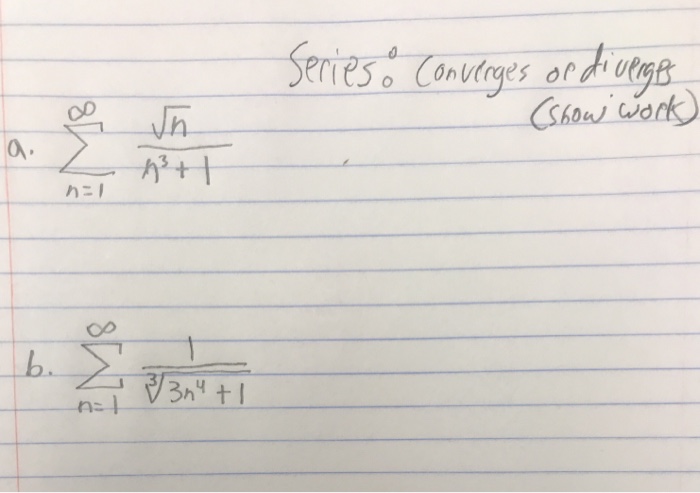 Series: Converges or diverges
(show work)
a. ∞ Σ n=1 √n / n³ + 1
b. ∞ Σ n=1 1 / ∛3n⁴ + 1